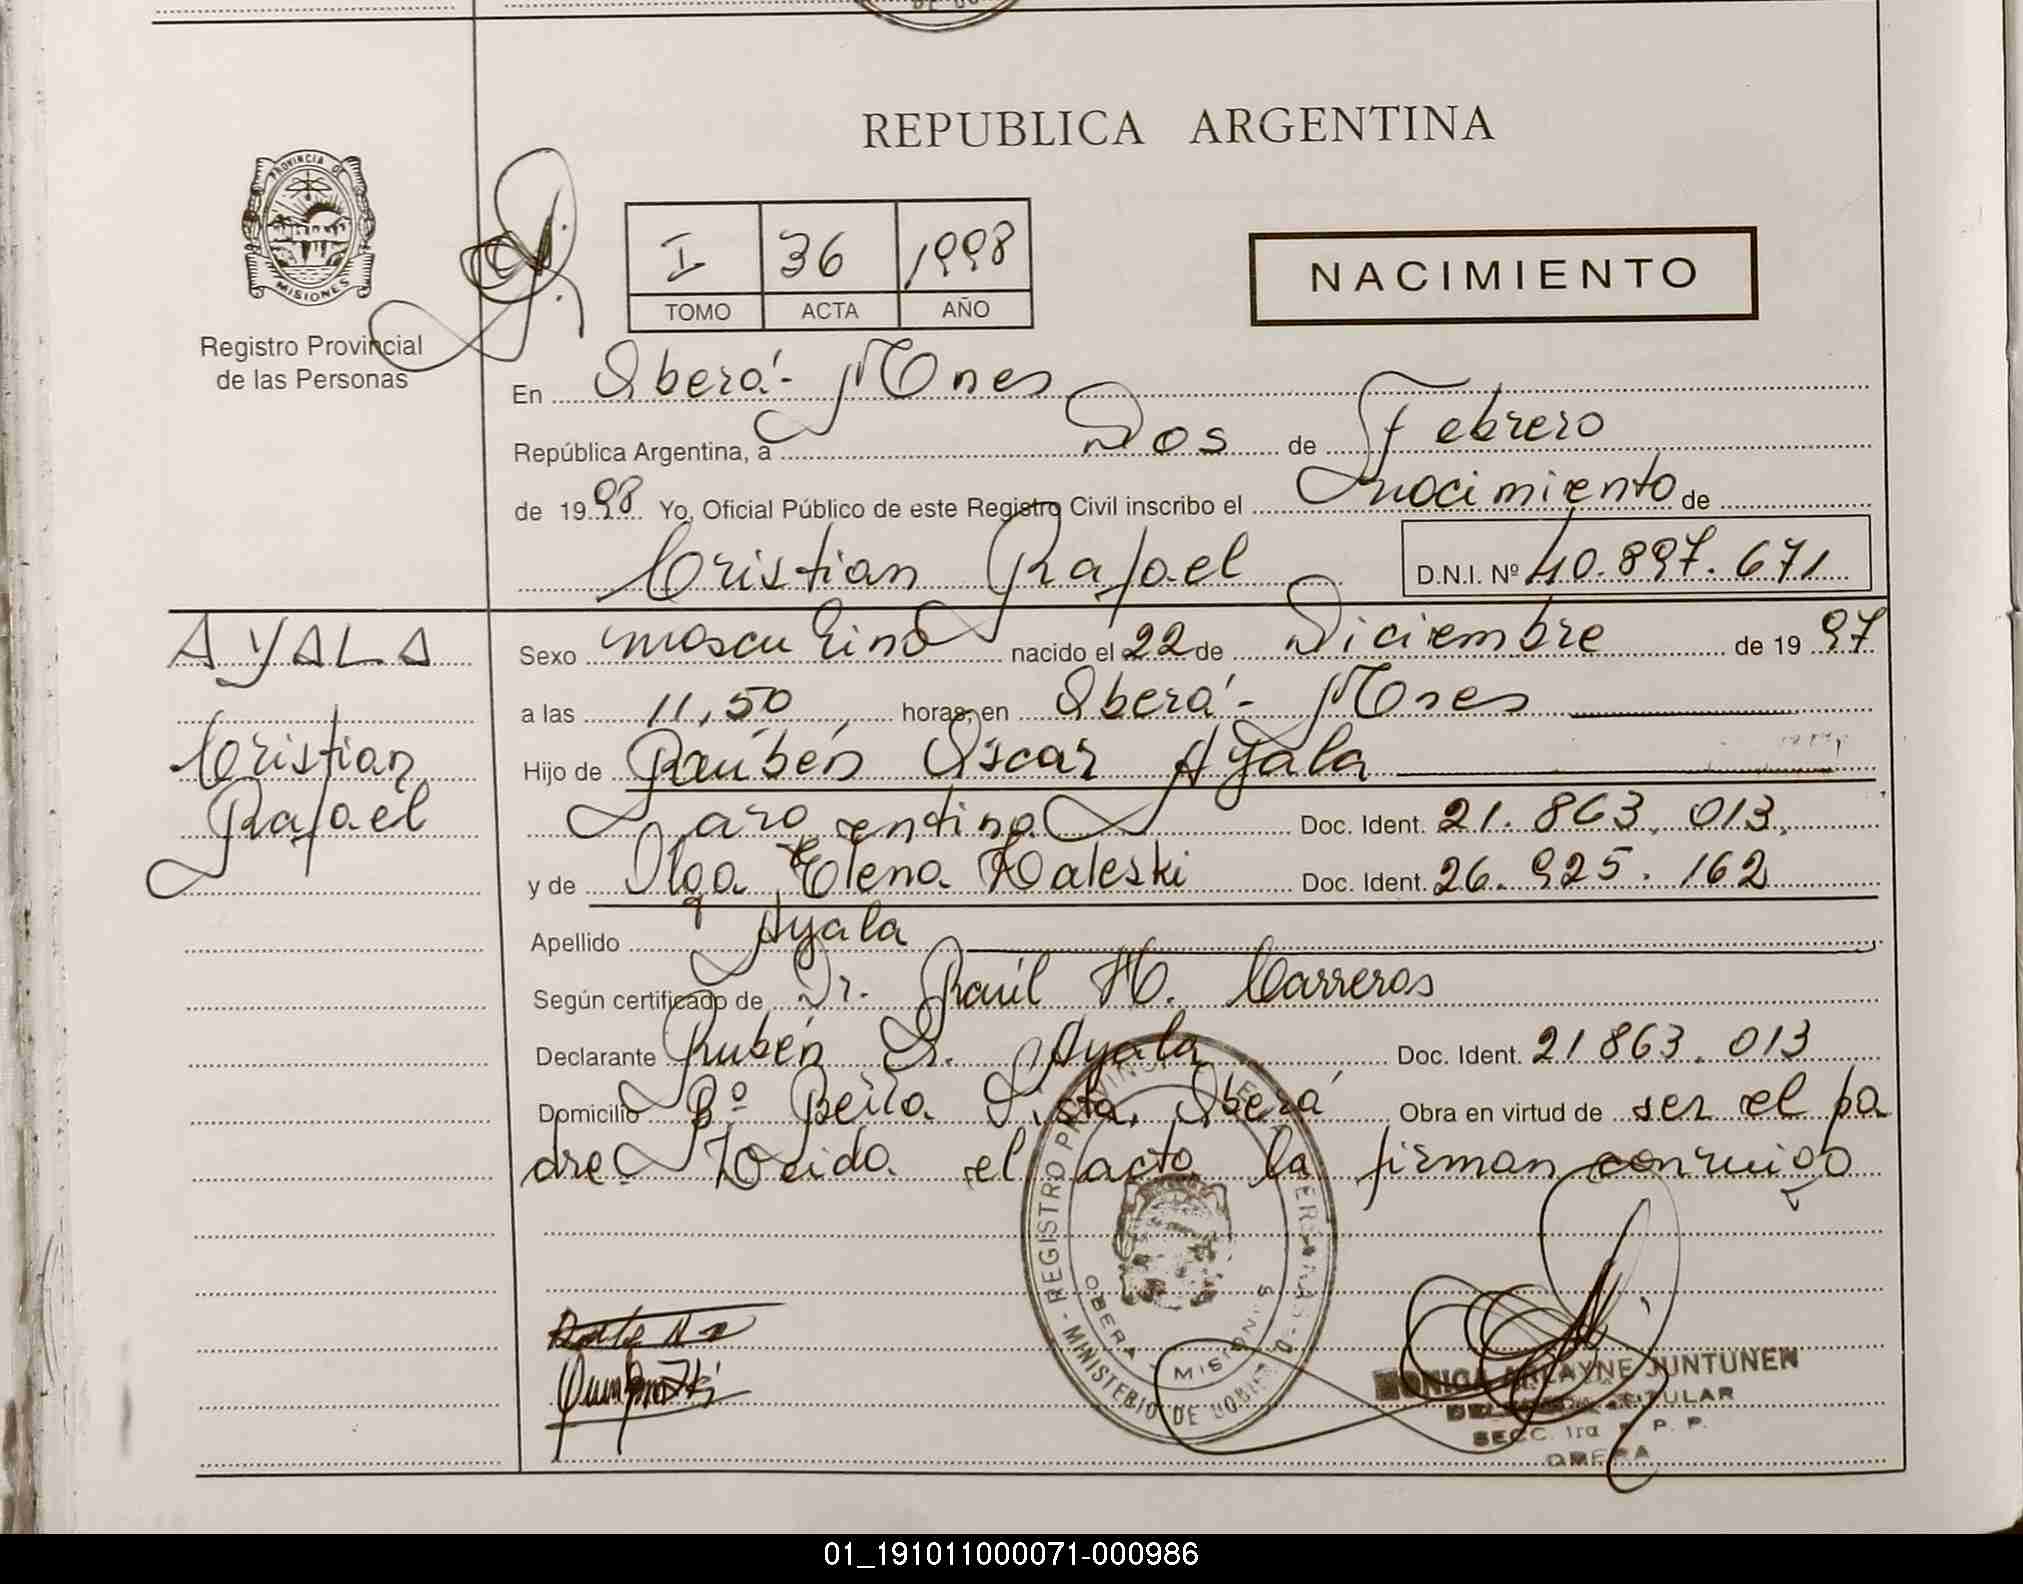 REPUBLICA ARGENTINA
PROVINCIA DE
MISIONES
Registro Provincial
de las Personas
I 36 1998
TOMO ACTA AÑO
NACIMIENTO
En Oberá - Mnes
República Argentina, a Dos de Febrero
de 1998 Yo, Oficial Público de este Registro Civil inscribo el nacimiento de
Cristian Rafael D.N.I. Nº 40.897.671
AYALA
Cristian
Rafael
Sexo masculino nacido el 22 de Diciembre de 1997
a las 11,50 horas, en Oberá - Mnes
Hijo de Rubén Oscar Ayala
argentino Doc. Ident. 21.863.013.
y de Olga Elena Kaleski Doc. Ident. 26.925.162
Apellido Ayala
Según certificado de Dr. Raúl H. Carreras
Declarante Rubén O. Ayala Doc. Ident. 21863.013
Domicilio Bº Bella Vista, Oberá Obra en virtud de ser el pa
dre. Leída el acta la firman conmigo
REGISTRO PROVINCIAL DE LAS PERSONAS - MINISTERIO DE GOBIERNO -
OBERA - MISIONES
MONICA ARLAYNE JUNTUNEN
DELEGADA TITULAR
SECC. 1ra R. P. P.
OBERA
01_191011000071-000986